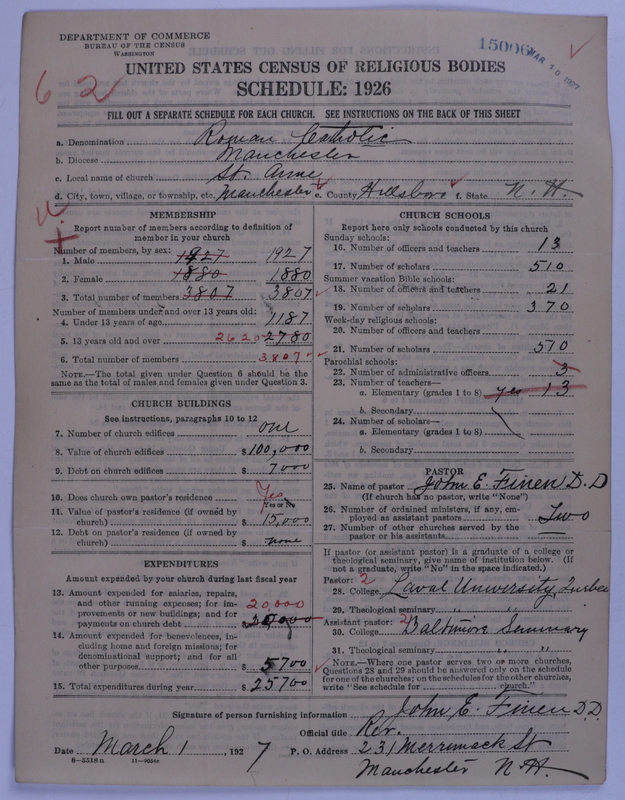 DEPARTMENT OF COMMERCE
BUREAU OF THE CENSUS
WASHINGTON
15006 MAR 10 1927
62
UNITED STATES CENSUS OF RELIGIOUS BODIES
SCHEDULE: 1926
FILL OUT A SEPARATE SCHEDULE FOR EACH CHURCH. SEE INSTRUCTIONS ON THE BACK OF THIS SHEET
a. Denomination Roman Catholic
b. Diocese Manchester
c. Local name of church St. Anne
d. City, town, village, or township, etc. Manchester e. County Hillsboro f. State N. H.
MEMBERSHIP
Report number of members according to definition of
member in your church
Number of members, by sex:
1. Male 1927 1927
2. Female 1880 1880
3. Total number of members 3807 3807
Number of members under and over 13 years old:
4. Under 13 years of age 1187
5. 13 years old and over 2620 2780
6. Total number of members 3807
NOTE.—The total given under Question 6 should be the
same as the total of males and females given under Question 3.
CHURCH BUILDINGS
See instructions, paragraphs 10 to 12
7. Number of church edifices one
8. Value of church edifices $100,000
9. Debt on church edifices $ 7000
10. Does church own pastor's residence Yes
Yes or No
11. Value of pastor's residence (if owned by
church) $ 15,000
12. Debt on pastor's residence (if owned by
church) $ none
EXPENDITURES
Amount expended by your church during last fiscal year
13. Amount expended for salaries, repairs,
and other running expenses; for im-
provements or new buildings; and for
payments on church debt 20,000
14. Amount expended for benevolences, in-
cluding home and foreign missions; for
denominational support; and for all
other purposes $ 5700
15. Total expenditures during year $ 25700
CHURCH SCHOOLS
Report here only schools conducted by this church
Sunday schools:
16. Number of officers and teachers 13
17. Number of scholars 510
Summer vacation Bible schools:
18. Number of officers and teachers 21
19. Number of scholars 370
Week-day religious schools:
20. Number of officers and teachers
21. Number of scholars 570
Parochial schools:
22. Number of administrative officers 3
23. Number of teachers—
a. Elementary (grades 1 to 8) yes 13
b. Secondary
24. Number of scholars—
a. Elementary (grades 1 to 8)
b. Secondary
PASTOR
25. Name of pastor John E. Finen D.D
(If church has no pastor, write "None")
26. Number of ordained ministers, if any, em-
ployed as assistant pastors Two
27. Number of other churches served by the
pastor or his assistants
If pastor (or assistant pastor) is a graduate of a college or
theological seminary, give name of institution below. (If
not a graduate, write "No" in the space indicated.)
Pastor: 2
28. College Laval University, Quebec
29. Theological seminary " "
Assistant pastor: 2
30. College Baltimore Seminary
31. Theological seminary " "
NOTE.—Where one pastor serves two or more churches,
Questions 28 and 29 should be answered only on the schedule
for one of the churches; on the schedules for the other churches,
write "See schedule for church."
Signature of person furnishing information John E. Finen D.D.
Official title Rev.
Date March 1, 1927 P. O. Address 231 Merrimack St
8—5518 a 11—9054a Manchester N.H.